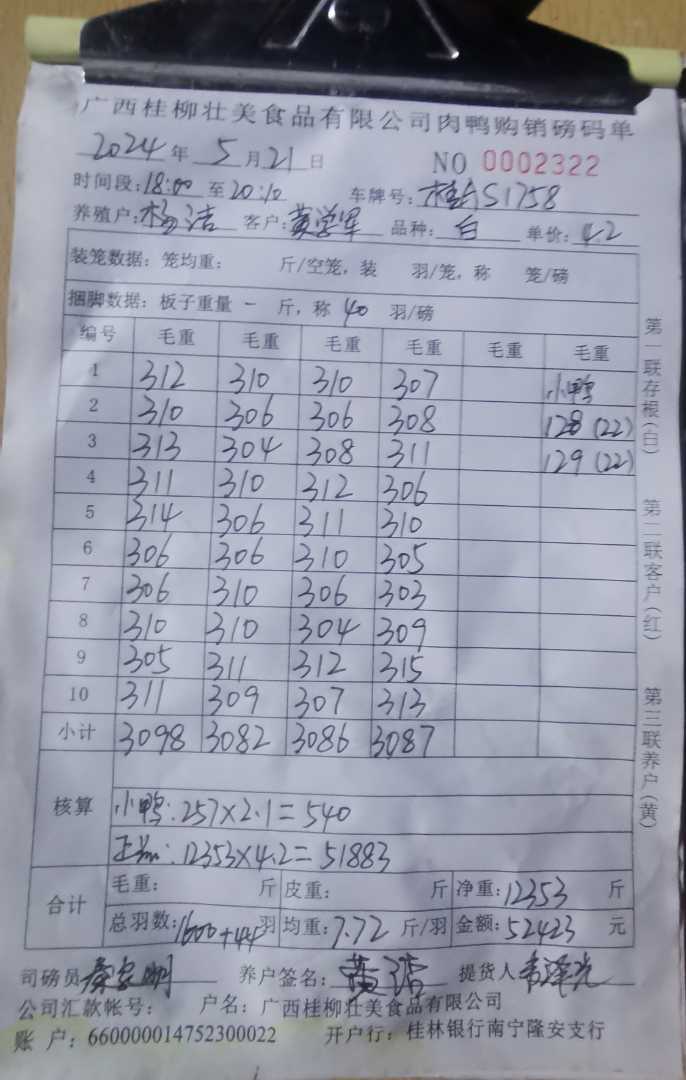 广西桂柳壮美食品有限公司肉鸭购销磅码单
2024 年 5 月 21 日 NO 0002322
时间段:18:00 至 20:10 车牌号: S1758
养殖户:杨洁 客户:黄学军 品种:白 单价:4.2
装笼数据:笼均重: 斤/空笼,装 羽/笼,称 笼/磅
捆脚数据:板子重量 一 斤,称 40 羽/磅
编号 毛重 毛重 毛重 毛重 毛重 毛重
1 312 310 310 307 小鸭
2 310 306 306 308 128 (22)
3 313 304 308 311 129 (22)
4 311 310 312 306
5 314 306 311 310
6 306 306 310 305
7 306 310 306 303
8 310 310 304 309
9 305 311 312 315
10 311 309 307 313
小计 3098 3082 3086 3087
核算
小鸭:257×2.1=540
正品:12353×4.2=51883
合计 毛重: 斤 皮重: 斤 净重:12353 斤
总羽数:1600+44羽 均重:7.72 斤/羽 金额:52423 元
司磅员 养户签名: 提货人 韦泽光
公司汇款帐号: 户名:广西桂柳壮美食品有限公司
账 户:660000014752300022 开户行:桂林银行南宁隆安支行
第一联存根(白)
第二联客户(红)
第三联养户(黄)